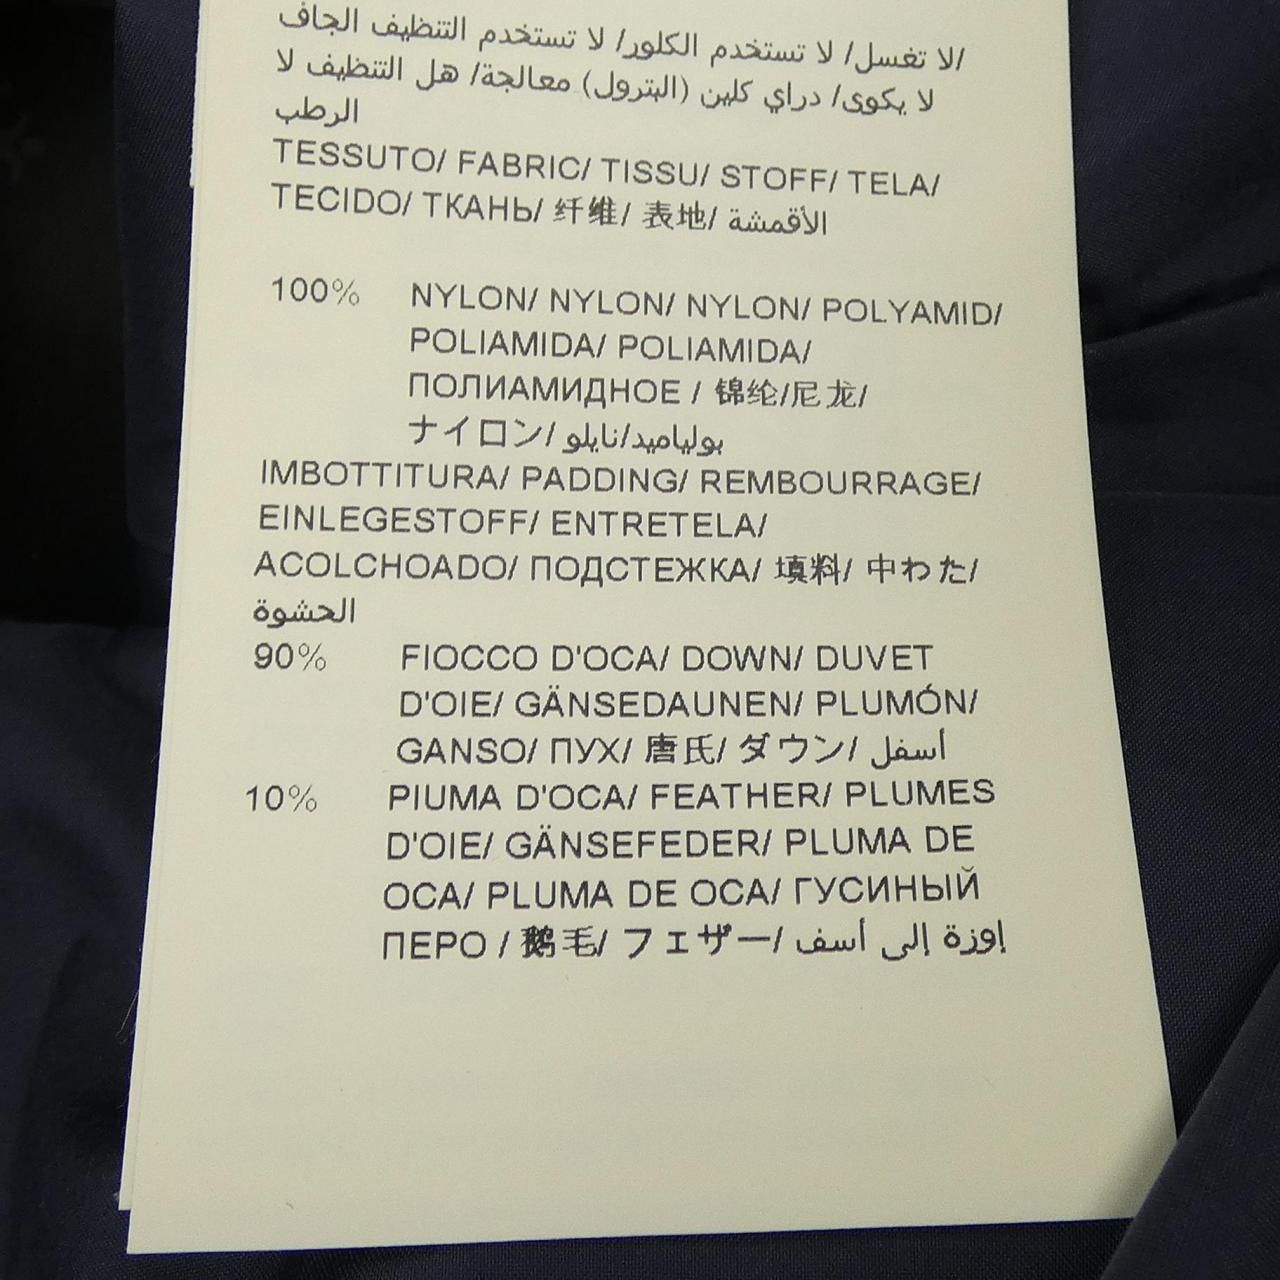 /لا تغسل/ لا تستخدم الكلور/ لا تستخدم التنظيف الجاف
لا يكوى/ دراي كلين (البترول) معالجة/ هل التنظيف لا
الرطب
TESSUTO/ FABRIC/ TISSU/ STOFF/ TELA/
TECIDO/ ТКАНЬ/ 纤维/ 表地/ الأقمشة
100% NYLON/ NYLON/ NYLON/ POLYAMID/
POLIAMIDA/ POLIAMIDA/
ПОЛИАМИДНОЕ / 锦纶/尼龙/
ナイロン/ بولياميد/نايلو
IMBOTTITURA/ PADDING/ REMBOURRAGE/
EINLEGESTOFF/ ENTRETELA/
ACOLCHOADO/ ПОДСТЕЖКА/ 填料/ 中わた/
الحشوة
90% FIOCCO D'OCA/ DOWN/ DUVET
D'OIE/ GÄNSEDAUNEN/ PLUMÓN/
GANSO/ ПУХ/ 唐氏/ ダウン/ أسفل
10% PIUMA D'OCA/ FEATHER/ PLUMES
D'OIE/ GÄNSEFEDER/ PLUMA DE
OCA/ PLUMA DE OCA/ ГУСИНЫЙ
ПЕРО / 鹅毛/ フェザー/ إوزة إلى أسف